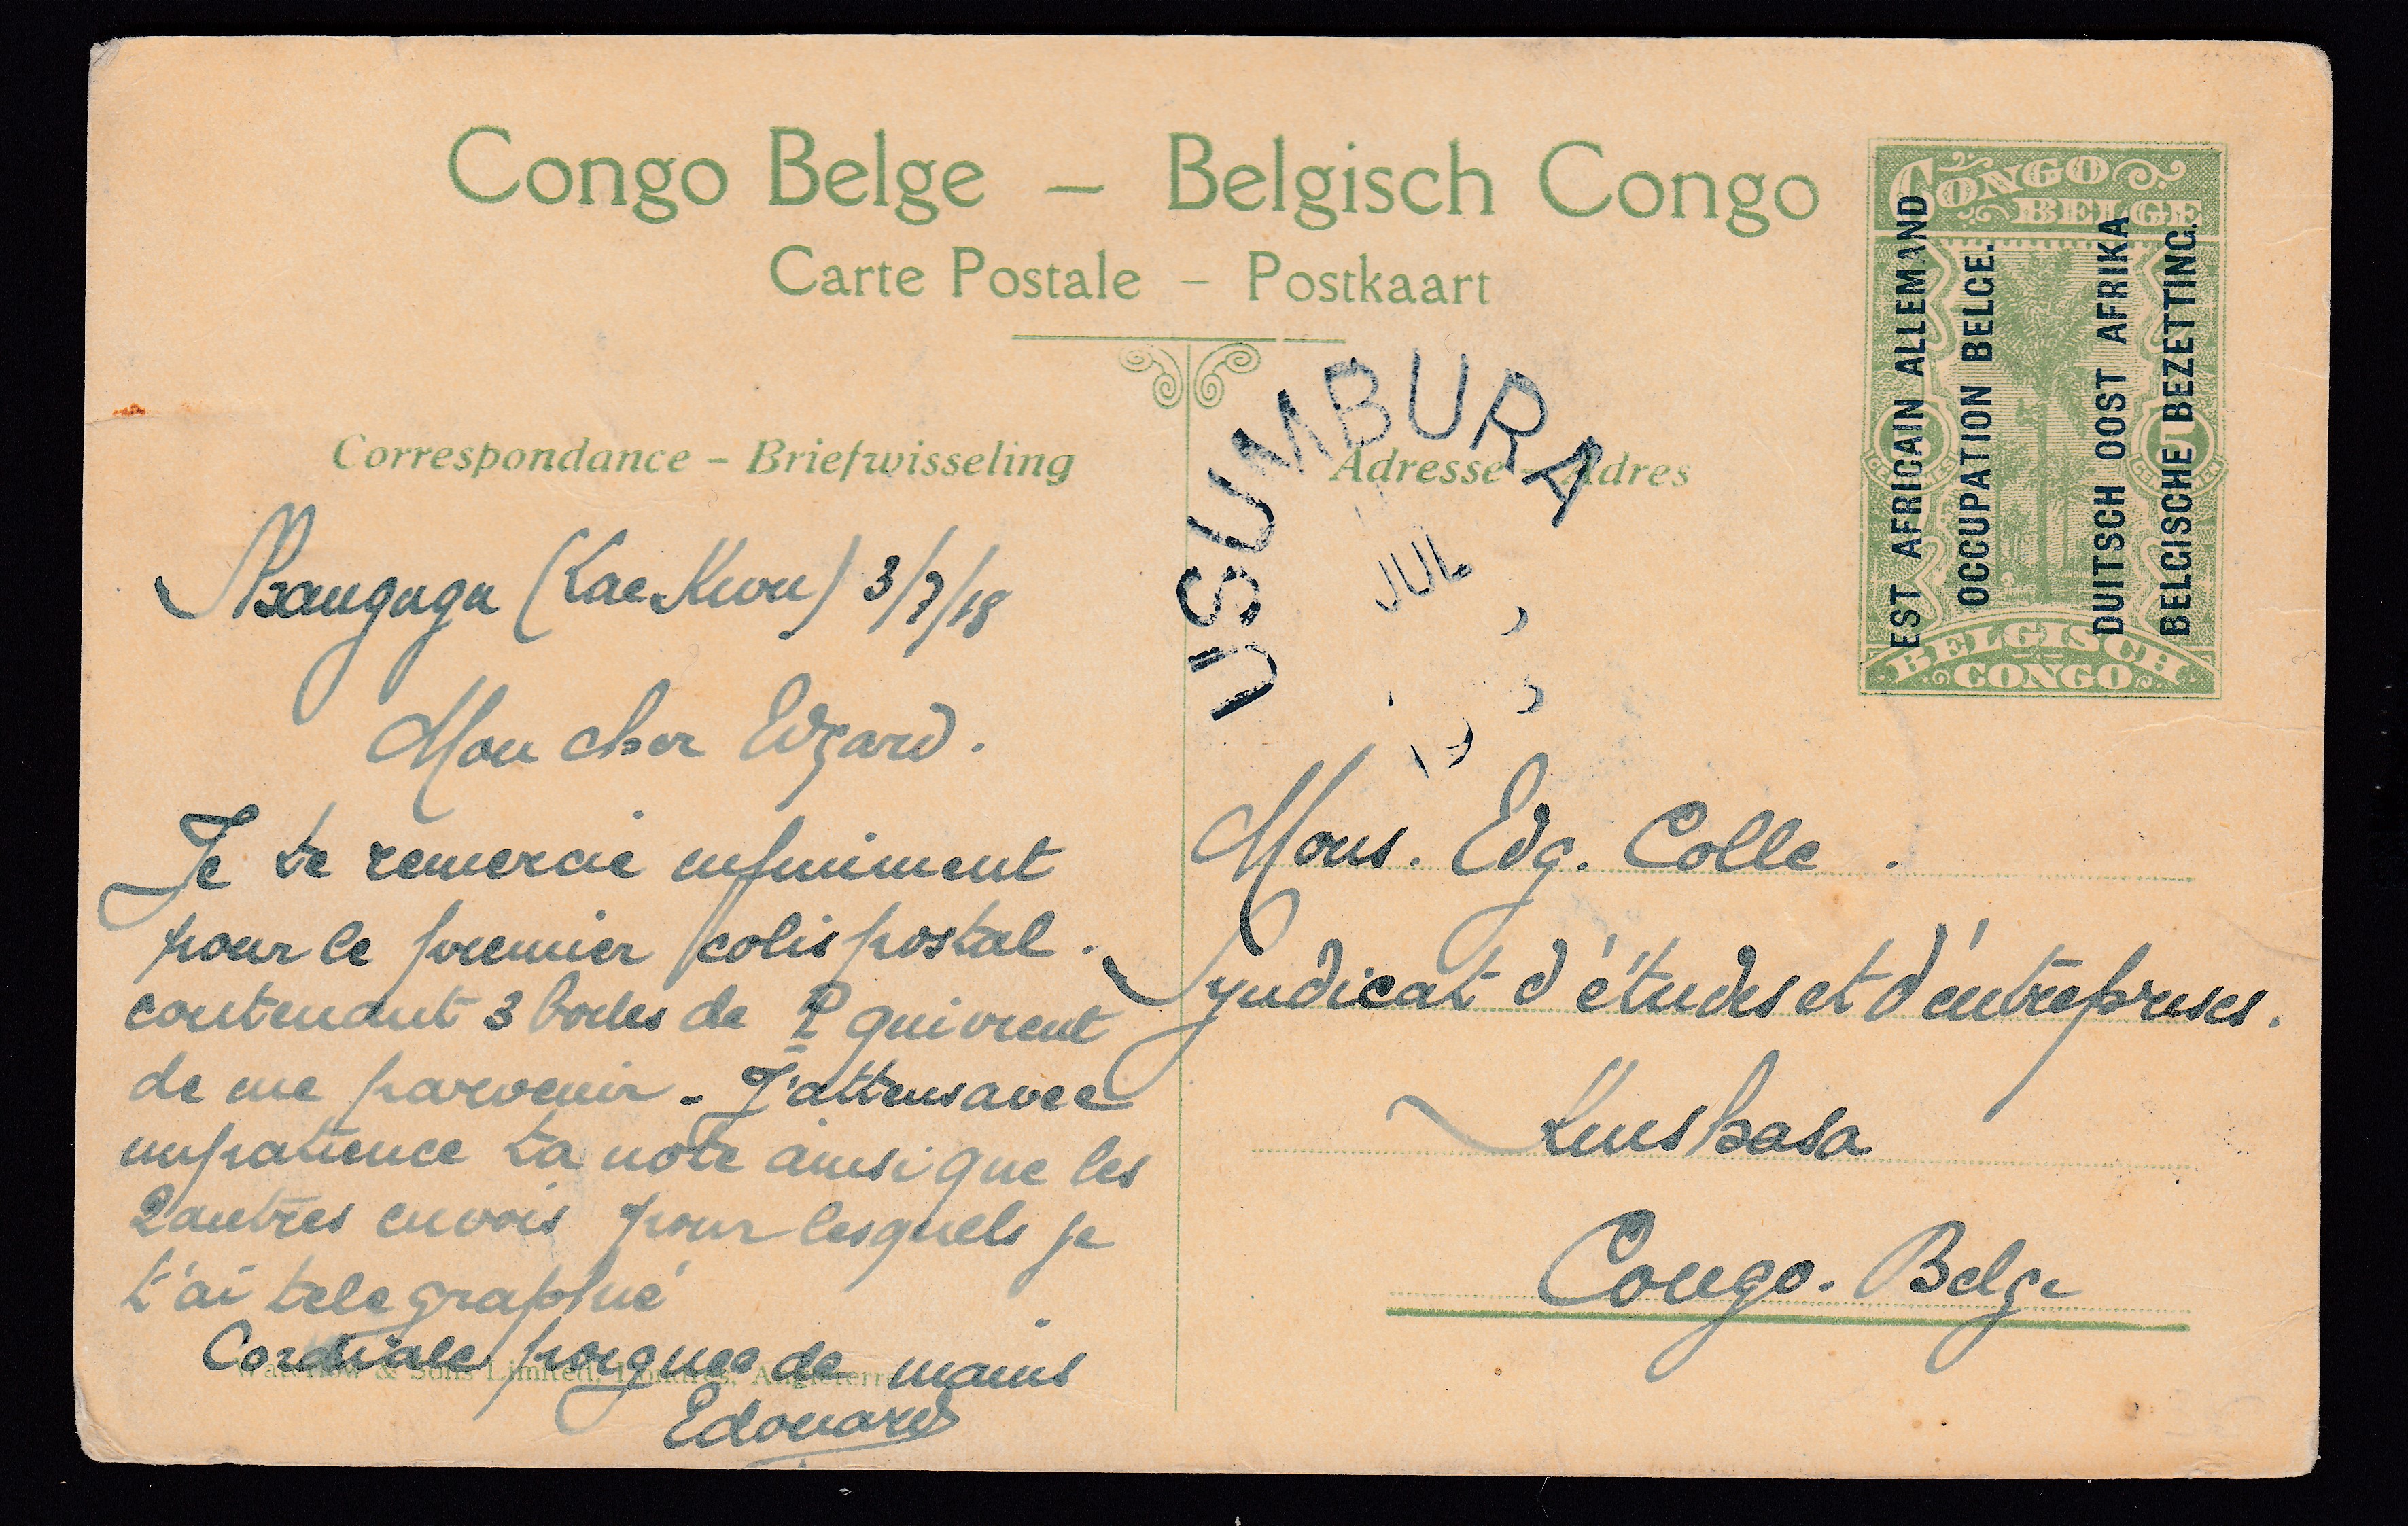 Congo Belge – Belgisch Congo
Carte Postale – Postkaart
CONGO
BELGE
EST AFRICAIN ALLEMAND
OCCUPATION BELGE.
DUITSCH OOST AFRIKA
BELGISCHE BEZETTING.
BELGISCH
CONGO
Correspondance – Briefwisseling
Adresse – Adres
USUMBURA
JUL
(Lac Kivu) 3/7/18
Mon cher Edgard.
Je te remercie infiniment
pour le premier colis postal.
contenant 3 boites de P qui vient
de me parvenir - J'attens avec
impatience ta note ainsi que les
2 autres envois pour lesquels je
t'ai telegraphié
Cordiale poignee de mains
Edouard
Waterlow & Sons Limited, Londres, Angleterre
Mons. Edg. Colle.
Syndicat d'études et d'entreprises.
Kinshasa
Congo. Belge